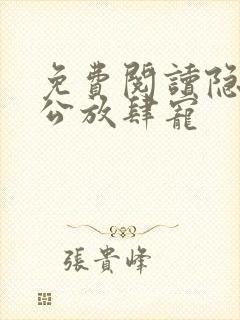 免費閱讀隐
公放肆寵
張貴峰